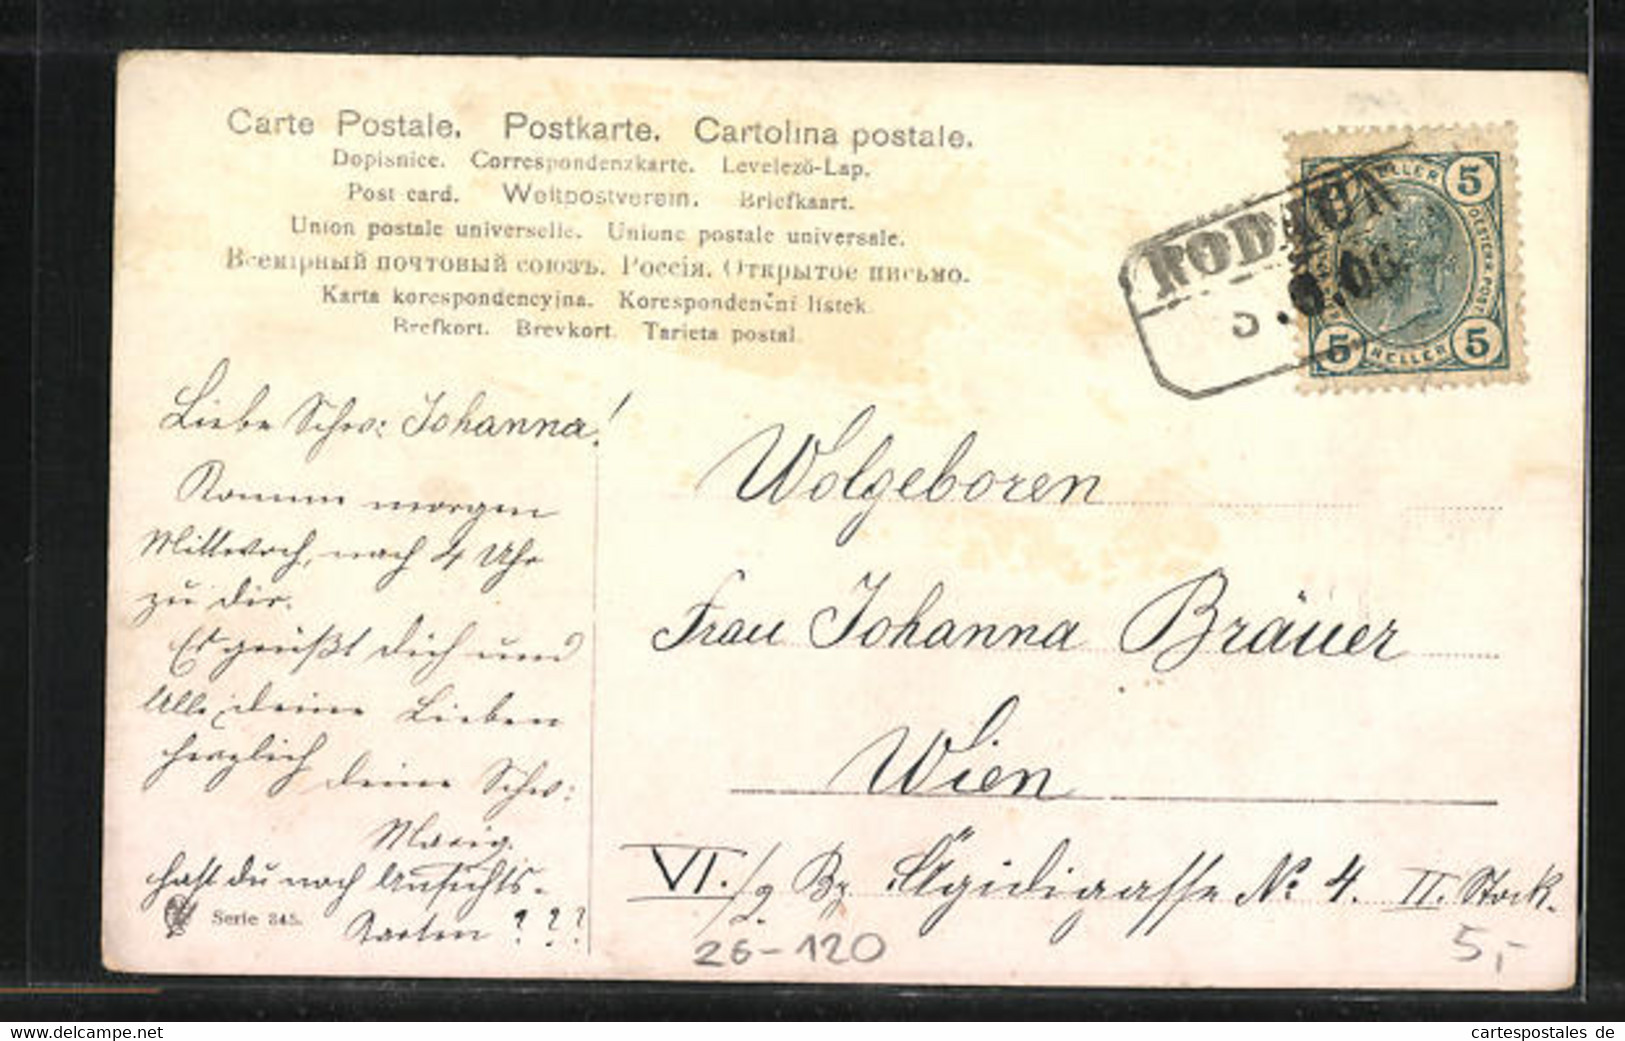 Carte Postale. Postkarte. Cartolina postale.
Dopisnice. Correspondenzkarte. Levelező-Lap.
Post card. Weltpostverein. Briefkaart.
Union postale universelle. Unione postale universale.
Всемірный почтовый союзъ. Россія. Открытое письмо.
Karta korespondencyjna. Korespondenční listek
Brefkort. Brevkort. Tarjeta postal.
RODAUN
5
HELLER
5
5
HELLER
Liebe Schw: Johanna!
Komme morgen
Mittwoch, nach 4 Uhr
zu dir.
Es grüßt dich und
Alle, deine Lieben
herzlich deine Schw:
hast du noch Ansichts-
Karten ? ? ?
Serie 345.
Wolgeboren
Frau Johanna Bräuer
Wien
VI./2 Bz. Ägidigasse No 4. II. Stock.
26-120
5,-
www.delcampe.net
cartespostales de